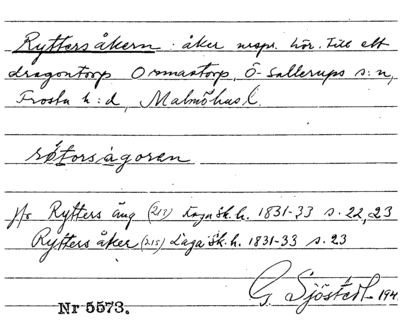 Ryttersåkern : åker urspr. hör. till ett
dragontorp Ormastorp, Ö. Sallerups s:n,
Frosta h:d, Malmöhus l.
Jfr Rytters äng (213) Laga sk.h. 1831-33 s. 22, 23
Rytters åker (215) Laga sk.h. 1831-33 s. 23
G. Sjöstedt 194
Nr 5573.